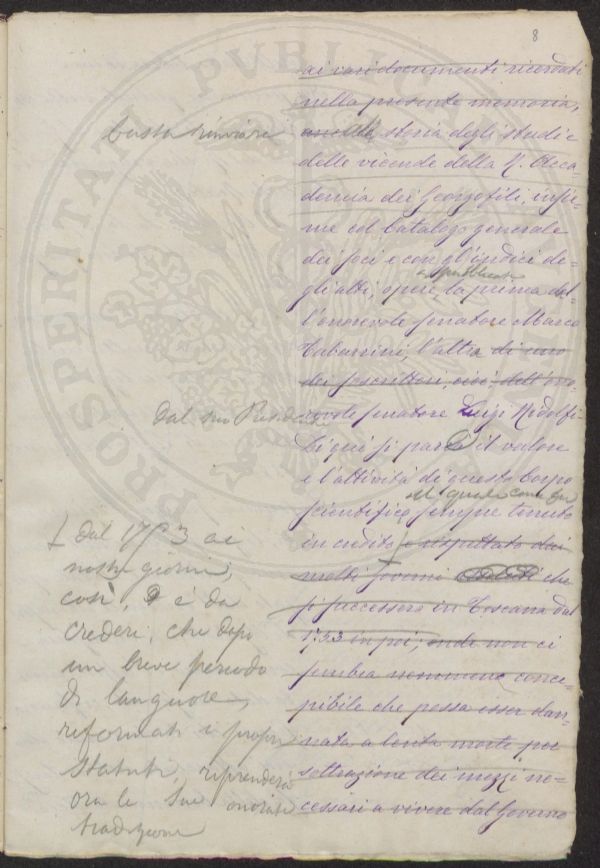 8
PROSPERITATI PVBLICAE
ai vari documenti ricordati
nella presente memoria,
basta rinviare
storia degli studi e
delle vicende della R. Acca-
demia dei Georgofili, insie-
me col Catalogo generale
dei soci e con gl'indici de-
pubblicate
gli atti, opere, la prima del-
l'onorevole senatore Marco
Tabarrini, l'altra di uno
dei soscrittori, cioè dell'ono-
dal suo Presidente
revole senatore Luigi Ridolfi
Di qui si parrà il valore
e l'attività di questo Corpo
il quale come fu
scientifico sempre tenuto
in credito e rispettato dai
molti governi che
si successero in Toscana dal
1753 in poi; onde non ci
sembra nemmeno conce-
pibile che possa esser dan-
nata a lenta morte per
sottrazione dei mezzi ne-
cessari a vivere dal Governo
dal 1753 ai
nostri giorni,
così, è da
credere, che dopo
un breve periodo
di languore,
riformati i propri
statuti, riprenderà
ora le sue onorate
tradizioni